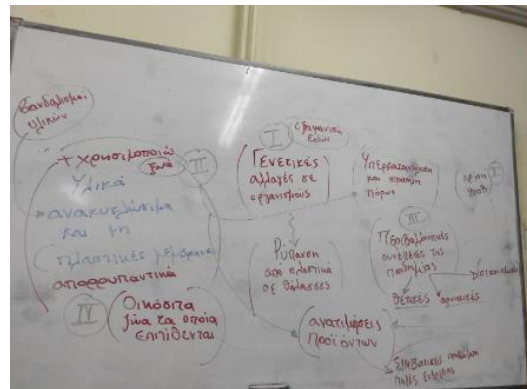 Βανδαλισμοί
υλικών
+ χρησιμοποιώ
ξανά
II
Υλικά
ανακυκλώσιμα
και μη
πλαστικές μεμβράνες
απορρυπαντικά
IV
Οικόσιτα
ζώα τα οποία
επιτίθενται
I
Εξαφάνιση
Ειδών
Γενετικές
αλλαγές σε
οργανισμούς
Ρύπανση
από πλαστικά
σε θάλασσες
Υπερκατανάλωση
και σπατάλη
πόρων
III
Περιβαλλοντικές
συνέπειες της
πανδημίας
θετικές
αρνητικές
ανατιμήσεις
προϊόντων